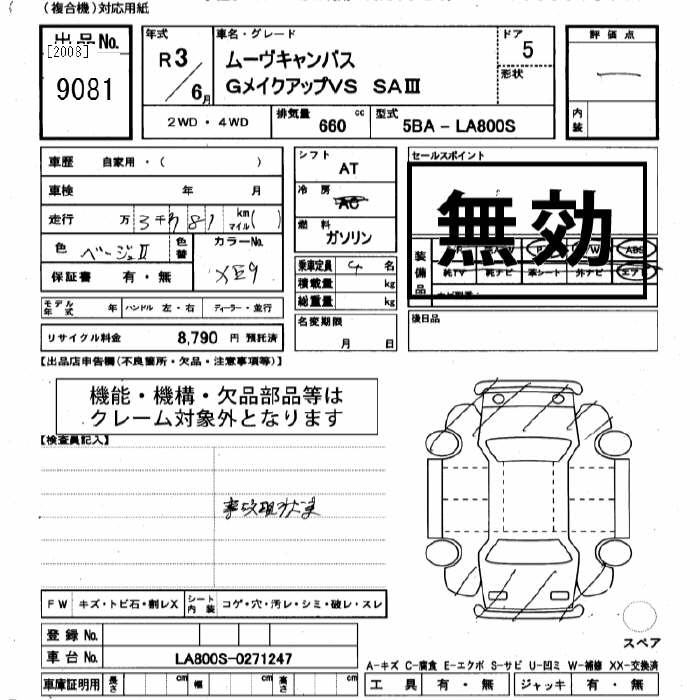 (複合機)対応用紙
出品No.
[2008]
9081
年式
R3/6月
車名・グレード
ムーヴキャンバス
GメイクアップVS SAⅢ
ドア
5
形状
評価点
内装
2WD・4WD
排気量 cc
660
型式
5BA - LA800S
車歴 自家用・( )
車検 年 月
走行 万 3千 781 km マイル( )
色 ベージュII
色替
カラーNo.
XE9
保証書 有・無
モデル年式 年
ハンドル 左・右
ディーラー・並行
リサイクル料金 8,790 円 預託済
シフト
AT
冷房
AC
燃料
ガソリン
乗車定員 4 名
積載量 kg
総重量 kg
名変期限
月 日
セールスポイント
無効
装備品
ABS
純TV 純ナビ 革シート 外ナビ エアB
後日品
【出品店申告欄(不良箇所・欠品・注意事項等)】
機能・機構・欠品部品等は
クレーム対象外となります
【検査員記入】
事故現状車
FW
キズ・トビ石・割レX
シート内装
コゲ・穴・汚レ・シミ・破レ・スレ
登録No.
車台No.
LA800S-0271247
車庫証明用 長さ cm 幅 cm 高さ cm
スペア
A-キズ C-腐食 E-エクボ S-サビ U-凹ミ W-補修 XX-交換済
工具 有・無 ジャッキ 有・無